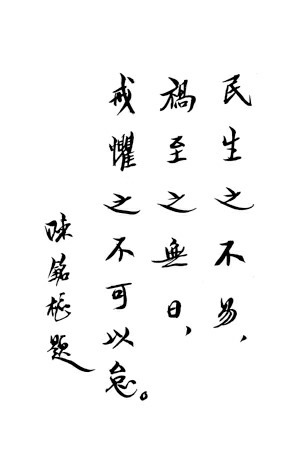 民生之不易，
禍至之無日，
戒懼之不可以怠。
陳銘樞題